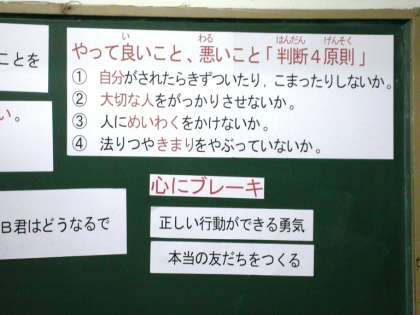 ことを
い。
B君はどうなるで
やって良いこと、悪いこと「判断4原則」
い わる はんだん げんそく
① 自分がされたらきずついたり、こまったりしないか。
② 大切な人をがっかりさせないか。
③ 人にめいわくをかけないか。
④ 法りつやきまりをやぶっていないか。
心にブレーキ
正しい行動ができる勇気
本当の友だちをつくる